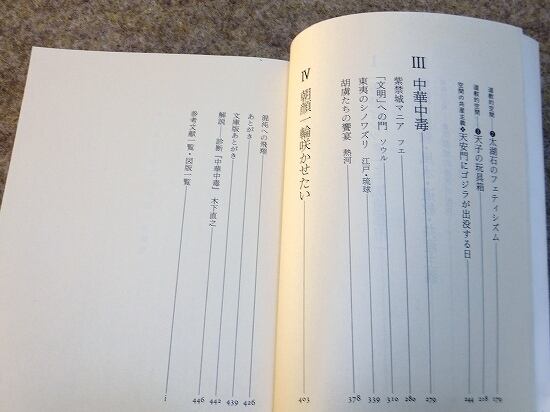 道教的空間―❷太湖石のフェティシズム 179
道教的空間―❸天子の玩具箱 218
空間の共産主義◆天安門にゴジラが出没する日 244
III 中華中毒 279
紫禁城マニア フエ 280
「文明」への門 ソウル 310
東夷のシノワズリ 江戸・琉球 339
胡虜たちの饗宴 熱河 378
IV 朝顔一輪咲かせたい 403
混沌への飛翔 426
あとがき 439
文庫版あとがき 442
解説―診断「中華中毒」 木下直之 446
参考文献一覧・図版一覧 i